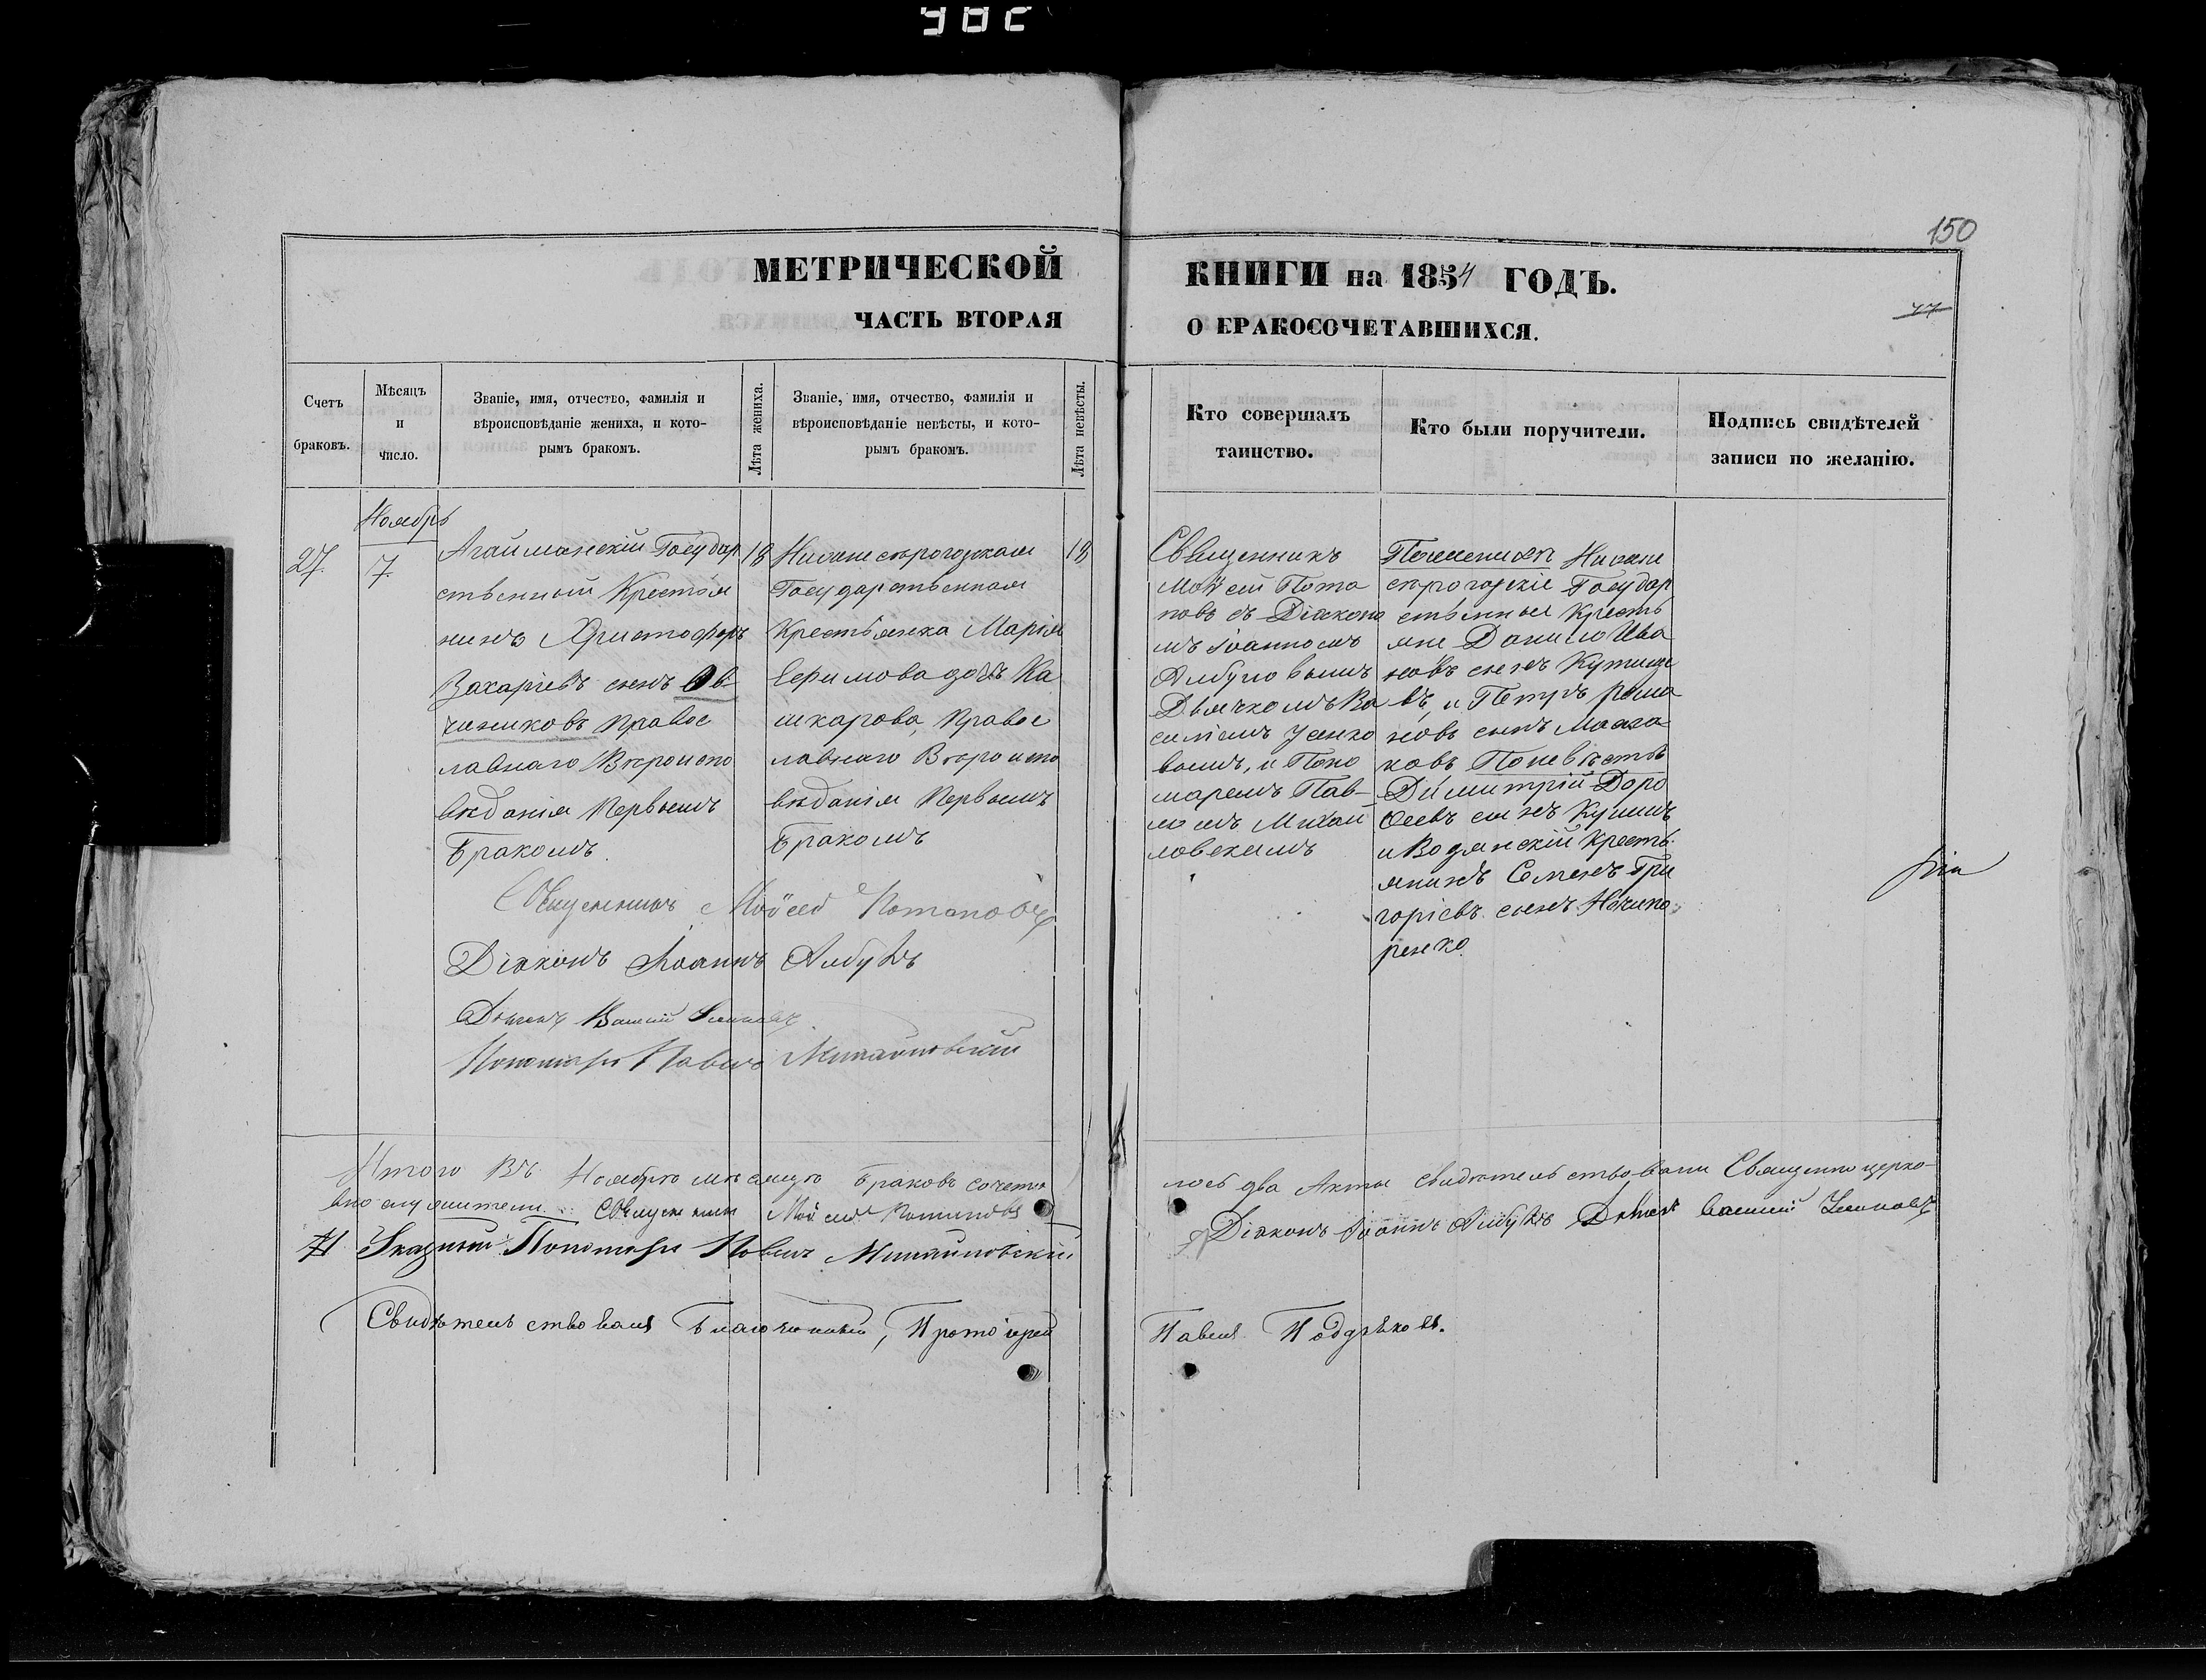 150
МЕТРИЧЕСКОЙ КНИГИ на 1854 ГОДЪ.
77
ЧАСТЬ ВТОРАЯ О БРАКОСОЧЕТАВШИХСЯ.
Счетъ браковъ.
Мѣсяцъ и число.
Званіе, имя, отчество, фамилія и
вѣроисповѣданіе жениха, и кото-
рымъ бракомъ.
Лѣта жениха.
Званіе, имя, отчество, фамилія и
вѣроисповѣданіе невѣсты, и кото-
рымъ бракомъ.
Лѣта невѣсты.
Кто совершалъ
таинство.
Кто были поручители.
Подпись свидѣтелей
записи по желанію.
27.
Ноябрь
7.
Агайманскій Государ
ственный Крестья
нинъ Христофоръ
Захаріевъ сынъ Ов-
чинниковъ Правос
лавнаго Вѣроиспо
вѣданія Первымъ
Бракомъ.
18
Нижне сѣрогозкая
Государственная
Крестьянка Марія
Ефимова дочь Ка
шкарова, Правос
лавнаго Вѣроиспо
вѣданія Первымъ
Бракомъ
18
Священникъ
Мойсей Пота
повъ съ Діаконо
мъ Іоанномъ
Албуловымъ
Дьячкомъ Ва
силіемъ
вымъ, и Поно
маремъ Пав-
ломъ Михай
ловскимъ
По женихѣ Нижне
сѣрогозскіе Государ
ственные Кресть
яне Данило Ива
новъ сынъ
въ, и Петръ Рома
новъ сынъ
ковъ По невѣстѣ
Димитрій Доро
ѳеевъ сынъ
и Водянскій Кресть-
янинъ Семенъ Гри
горіевъ сынъ Ничипо
ренко.
Священникъ Мойсей Потаповъ
Діаконъ Іоаннъ Албулъ
Дьячекъ Василій
Пономарь Павелъ Михайловскій
Итого Въ Ноябрѣ мѣсяцѣ браковъ сочета
лось два Акты свидѣтельствовали Священно церко-
вно служители: Священникъ Мойсей Потаповъ
Діаконъ Іоаннъ Албулъ Дьячекъ Василій
Указный Пономарь Павелъ Михайловскій
Свидѣтельствовалъ Благочинный, Протоіерей
Павелъ Поддубковъ.